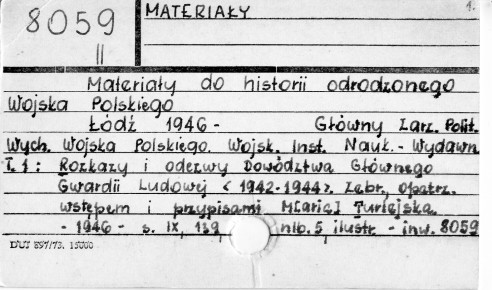 8059
II
MATERIAŁY
1.
Materiały do historii odrodzonego
Wojska Polskiego
Łódź 1946 - Główny Zarz. Polit.
Wych. Wojska Polskiego. Wojsk. Inst. Nauk. - Wydawn
T. 1 : Rozkazy i odezwy Dowództwa Głównego
Gwardii Ludowej < 1942-1944 r. Zebr, opatrz.
wstępem i przypisami M[aria] Turlejska.
- 1946 - s. IX, 139 nlb. 5, ilustr - inw. 8059
DUJ 897/73. 15000